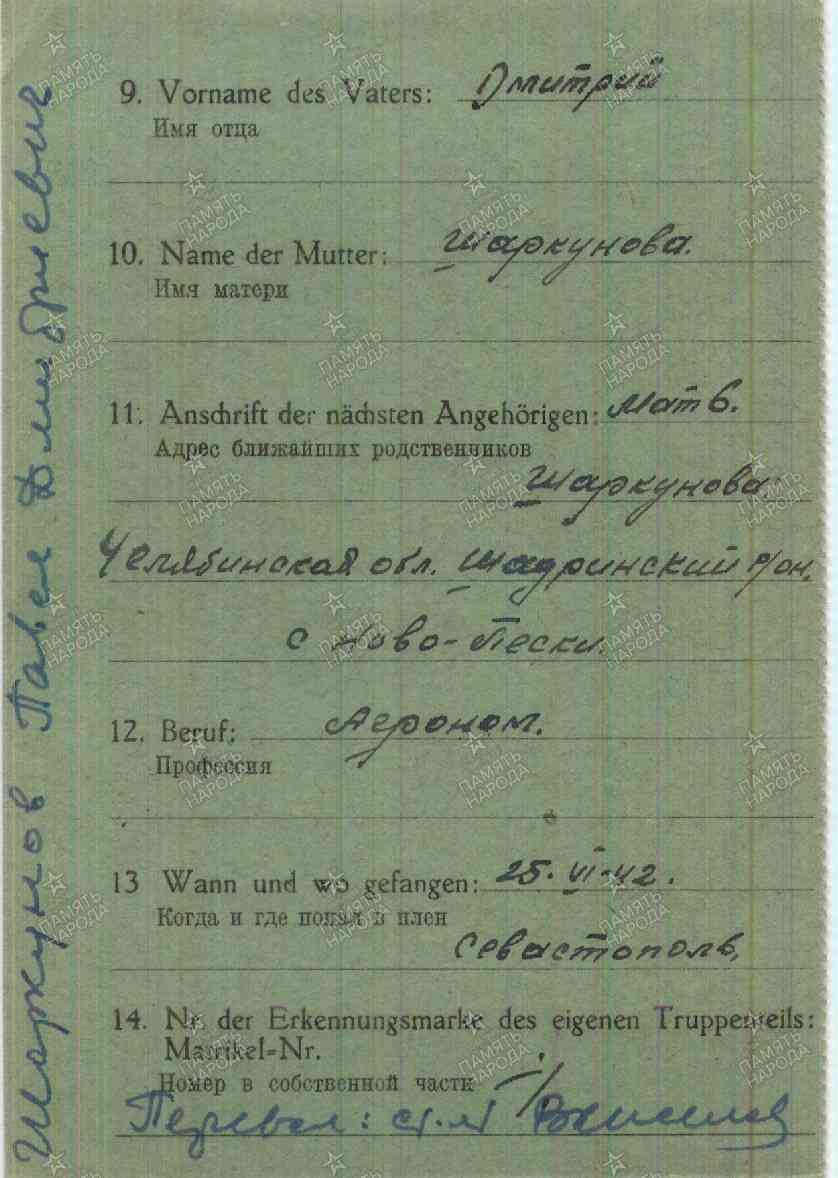 9. Vorname des Vaters: Дмитрий
Имя отца
10. Name der Mutter: Шаркунова.
Имя матери
11. Anschrift der nächsten Angehörigen: Мать
Адрес ближайших родственников
Шаркунова:
Челябинская обл. Шадринский р/он.
с Ново-Пески.
12. Beruf: Агроном.
Профессия
13 Wann und wo gefangen: 25.VI-42.
Когда и где попал в плен
Севастополь.
14. Nr. der Erkennungsmarke des eigenen Truppenteils:
Matrikel-Nr.
Номер в собственной части
Перевел: ст. лт
Шаркунов Павел Дмитриевич
ПАМЯТЬ НАРОДА